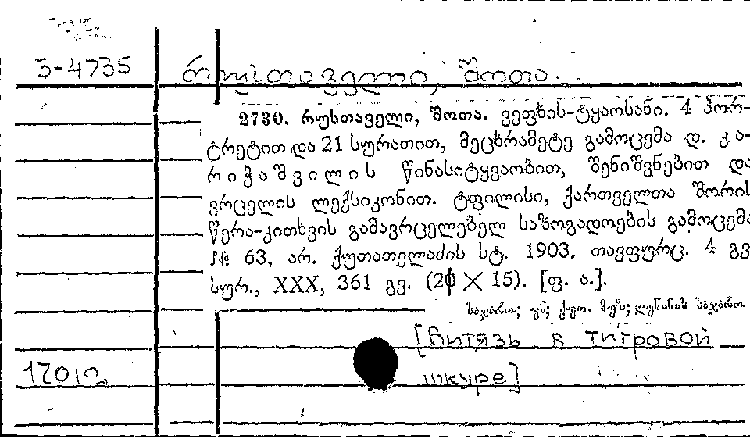 3-4735
რუსთაველი, შოთა.
2730. რუსთაველი, შოთა. ვეფხის-ტყაოსანი. 4 პორ-
ტრეტით და 21 სურათით, მეცხრამეტე გამოცემა დ. კა-
რიჭაშვილის წინასიტყვაობით, შენიშვნებით და
ვრცელის ლექსიკონით. ტფილისი, ქართველთა შორის
წერა-კითხვის გამავრცელებელ საზოგადოების გამოცემა
№ 63, არ. ქუთათელაძის სტ. 1903. თავფურც. 4 გვ.
სურ., XXX, 361 გვ. (20 × 15). [ფ. ა.].
საჯარო;
[Витязь в тигровой
шкуре]